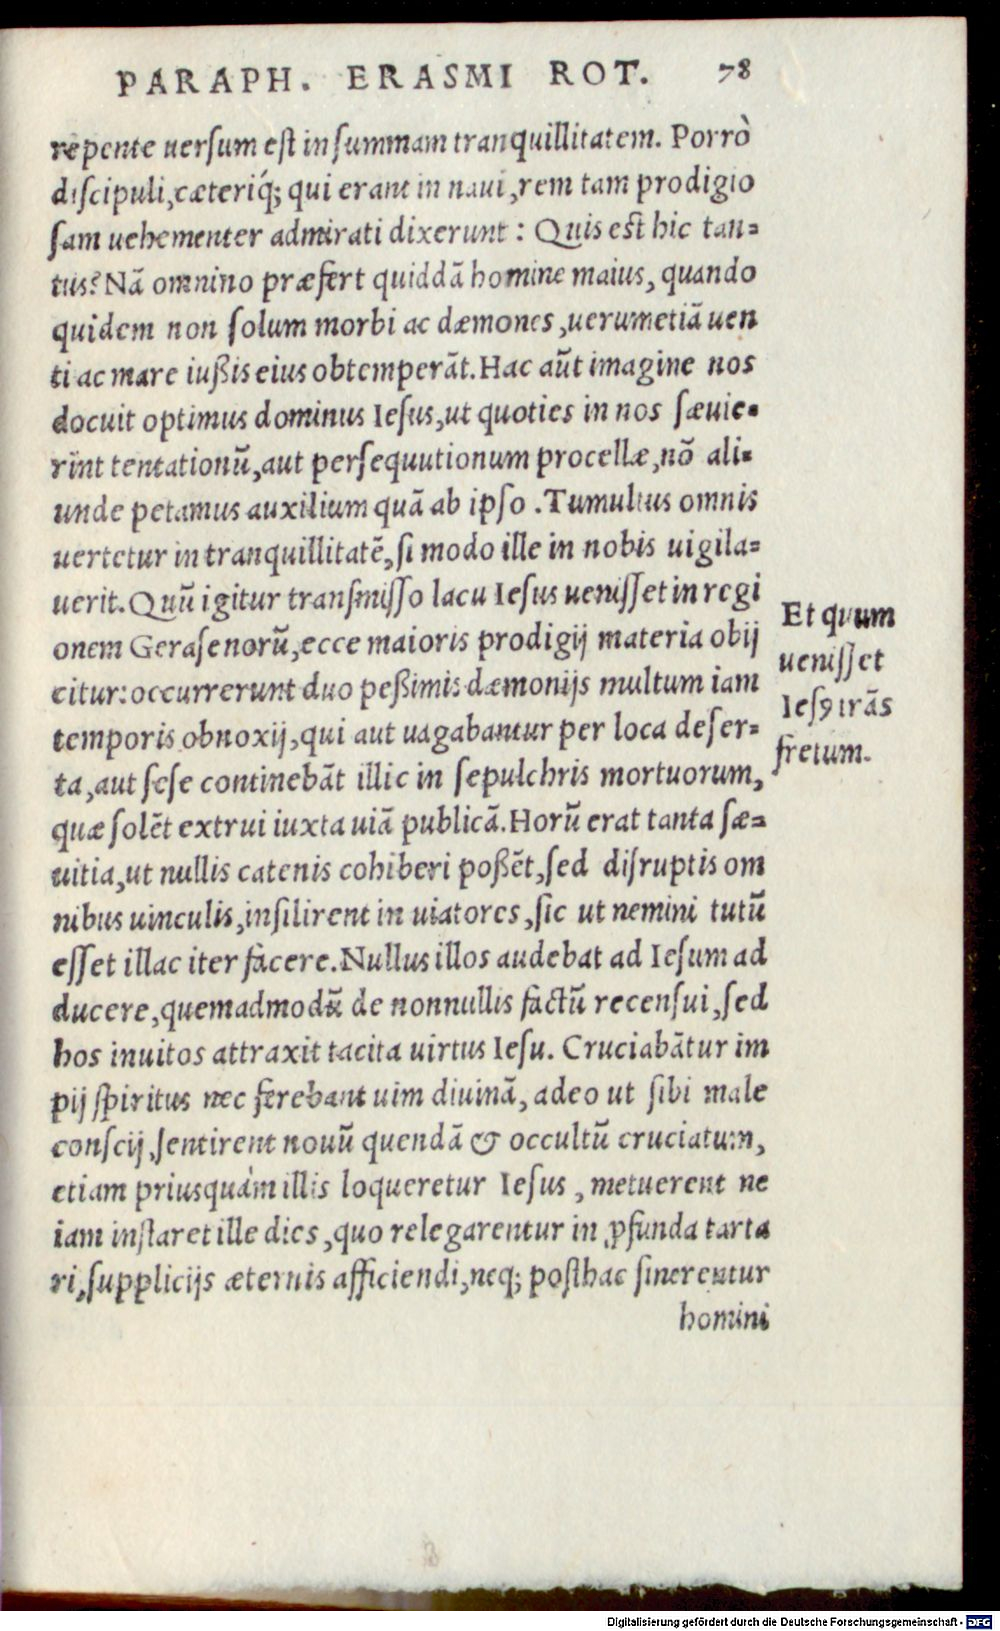 PARAPH. ERASMI ROT. 78
repente uersum est in summam tranquillitatem. Porrò
discipuli, cæteriq́; qui erant in naui, rem tam prodigio
sam uehementer admirati dixerunt: Quis est hic tan=
tus? Nā omnino præfert quiddā homine maius, quando
quidem non solum morbi ac dæmones, uerumetiā uen
ti ac mare iußis eius obtemperāt. Hac aūt imagine nos
docuit optimus dominus Iesus, ut quoties in nos sæuie=
rint tentationū, aut persequutionum procellæ, nō ali=
unde petamus auxilium quā ab ipso. Tumultus omnis
uertetur in tranquillitatē, si modo ille in nobis uigila=
uerit. Quū igitur transmisso lacu Iesus uenisset in regi
onem Gerasenorū, ecce maioris prodigij materia obij
citur: occurrerunt duo peßimis dæmonijs multum iam
temporis obnoxij, qui aut uagabantur per loca deser=
ta, aut sese continebāt illic in sepulchris mortuorum,
quæ solēt extrui iuxta uiā publicā. Horū erat tanta sæ=
uitia, ut nullis catenis cohiberi poßēt, sed disruptis om
nibus uinculis, insilirent in uiatores, sic ut nemini tutū
esset illac iter facere. Nullus illos audebat ad Iesum ad
ducere, quemadmodū de nonnullis factū recensui, sed
hos inuitos attraxit tacita uirtus Iesu. Cruciabātur im
pij spiritus nec ferebant uim diuinā, adeo ut sibi male
conscij, sentirent nouū quendā & occultū cruciatum,
etiam priusquàm illis loqueretur Iesus, metuerent ne
iam instaret ille dies, quo relegarentur in ꝓfunda tarta
ri, supplicijs æternis afficiendi, neq; posthac sinerentur
homini
Et quum
uenisset
Iesꝰ trās
fretum.
Digitalisierung gefördert durch die Deutsche Forschungsgemeinschaft - DFG